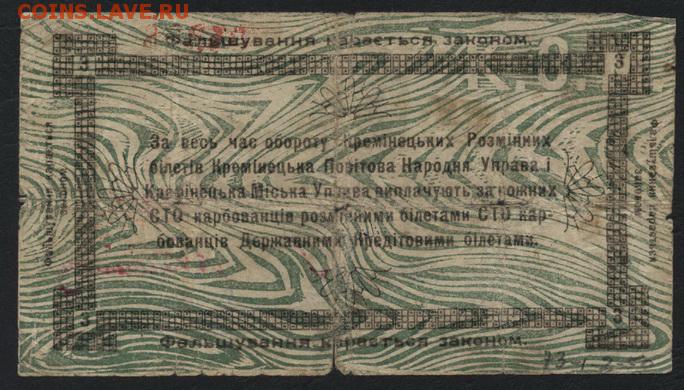 COINS.LAVE.RU
Фальшування карається законом.
3
3
За весь час обороту Кремінецьких Розмінних
білетів Кремінецька Повітова Народня Управа і
Кремінецька Міська Управа виплачують за кожних
СТО карбованців розмінними білетами СТО кар-
бованців Державними Кредітовими білетами.
Фальшування карається законом.
Фальшування карається законом.
3
3
Фальшування карається законом.